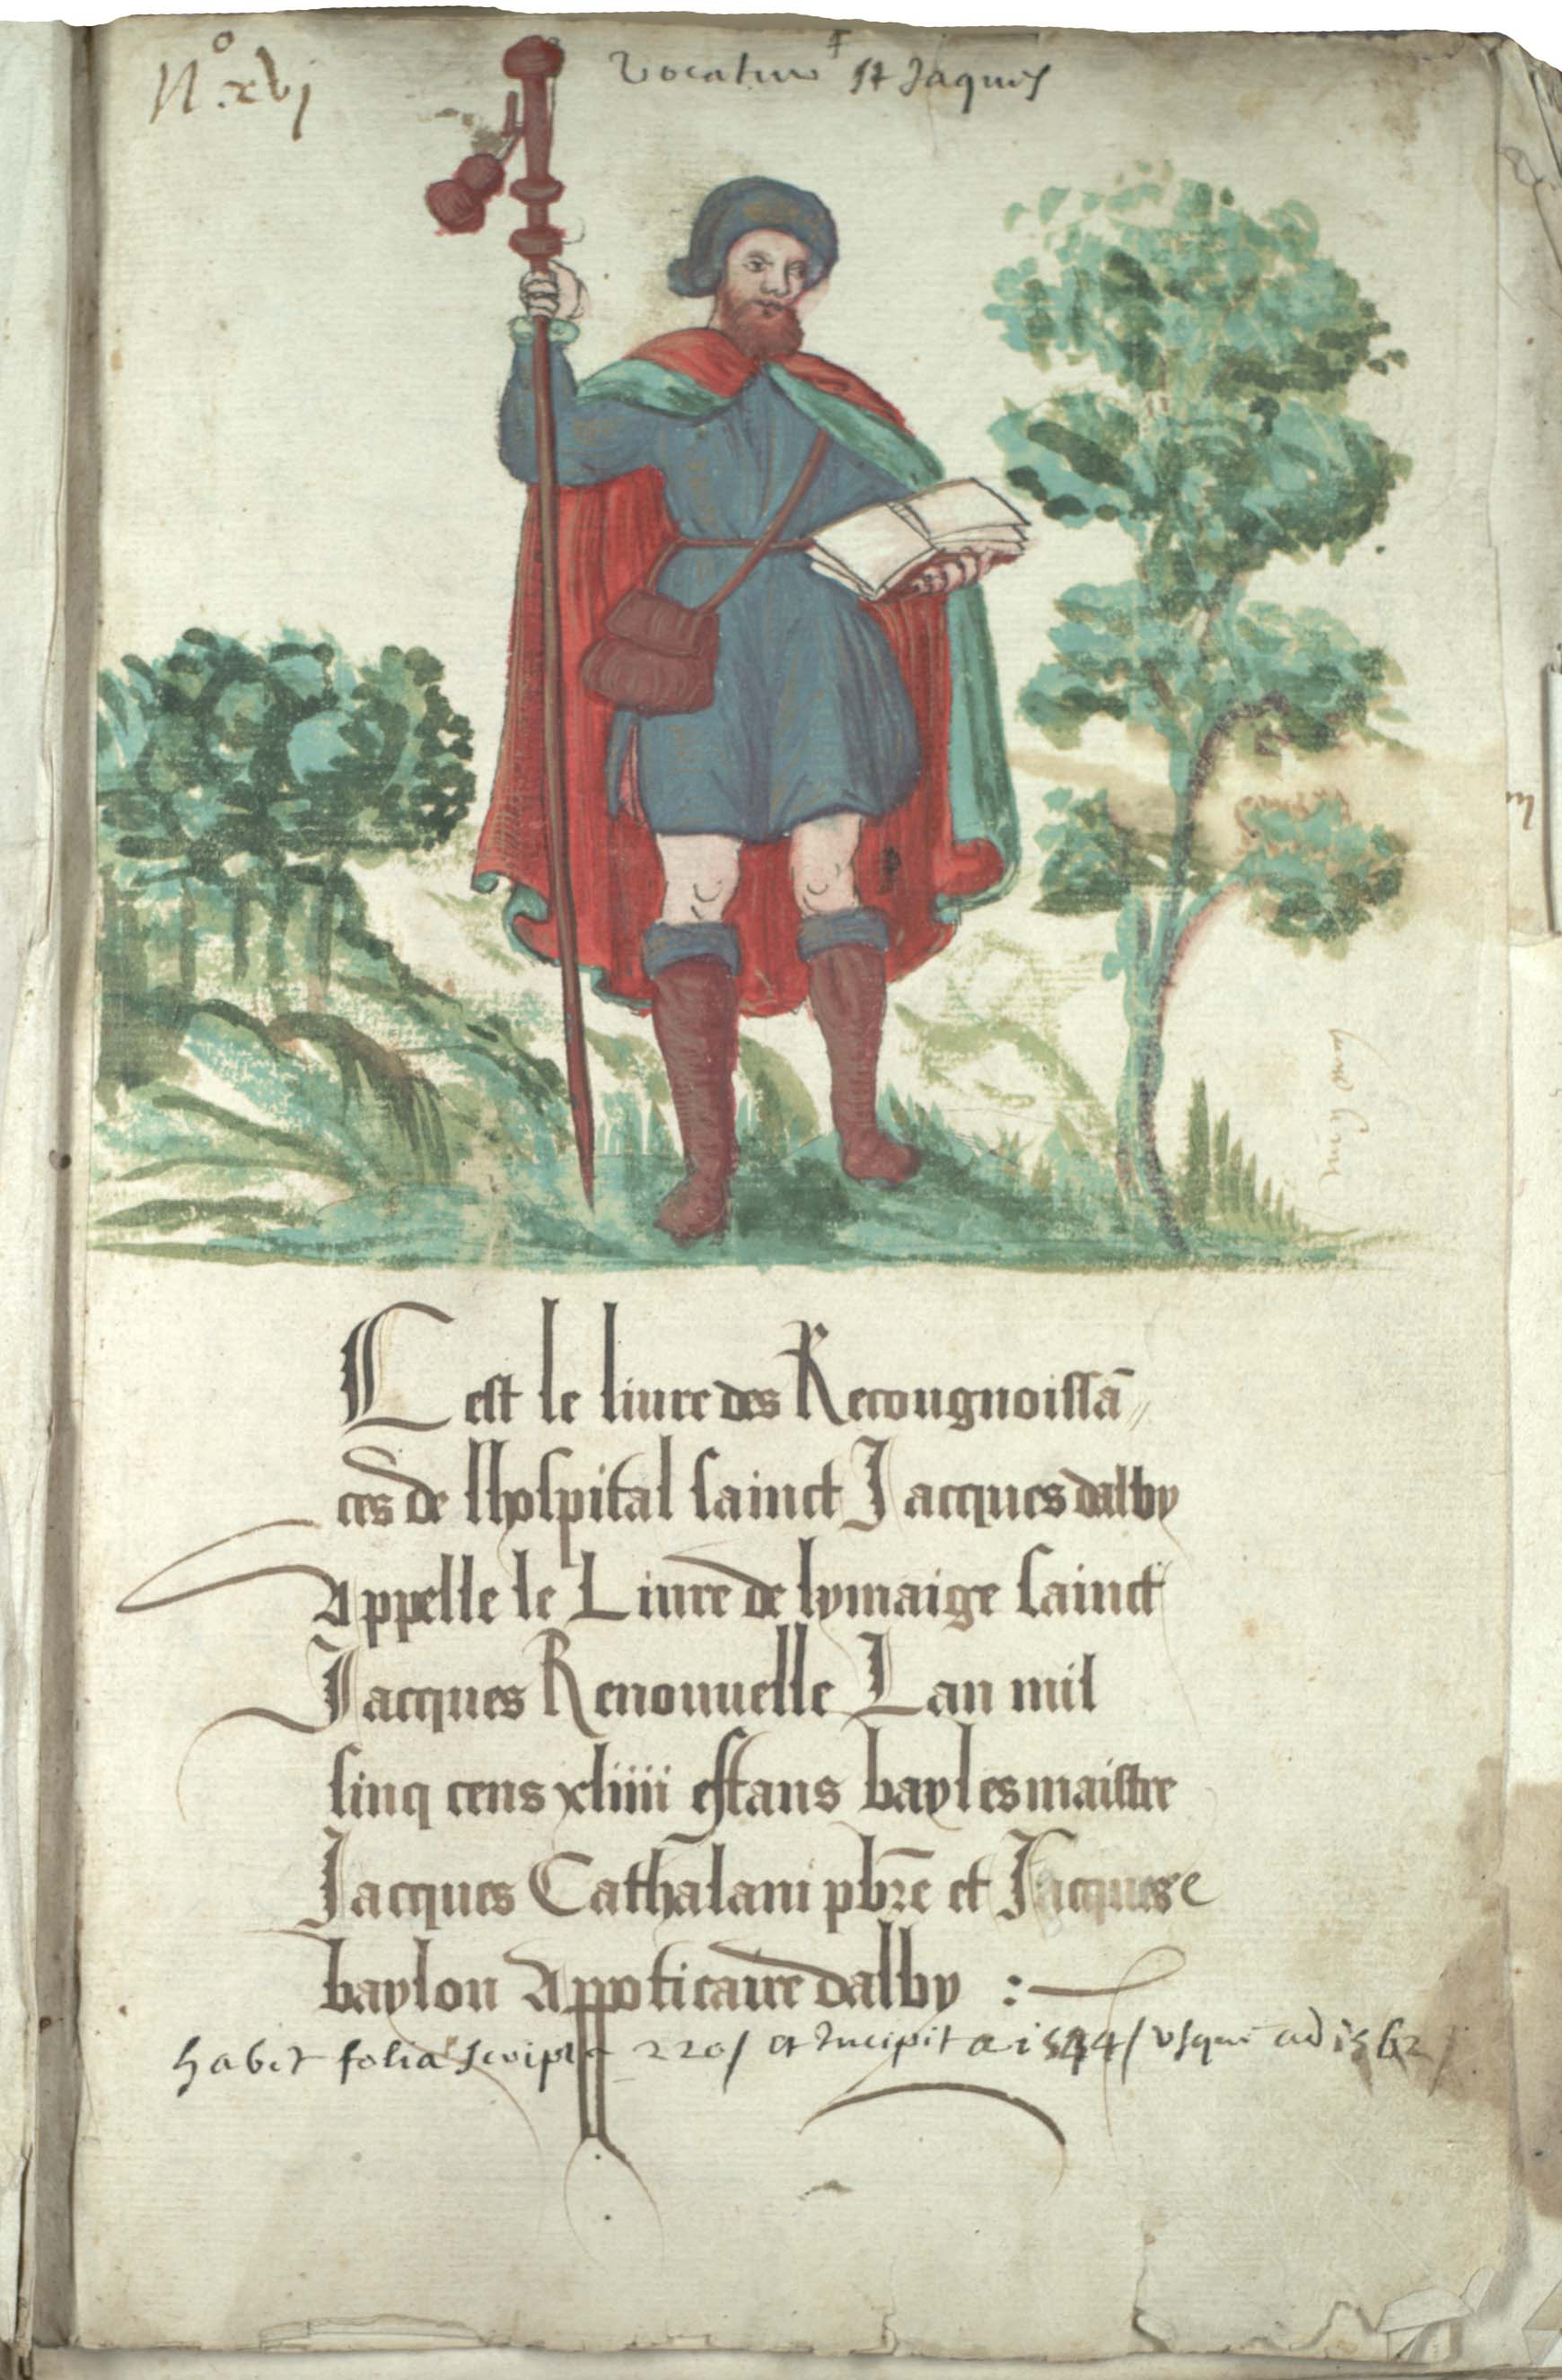 N.º xvj
vocatur st Jaques
Cest le liure des Recougnoissā
ces de lhospital sainct Jacques dalby
Appelle le Liure de lymaige sainct
Jacques Renouuelle Lan mil
sinq cens xliiii estans bayles maistre
Jacques Cathalani pbre et Jacques
baylon Appoticaire dalby :
habet folia scripta 220/ et Incipit a 1544/ vsque ad 1562/